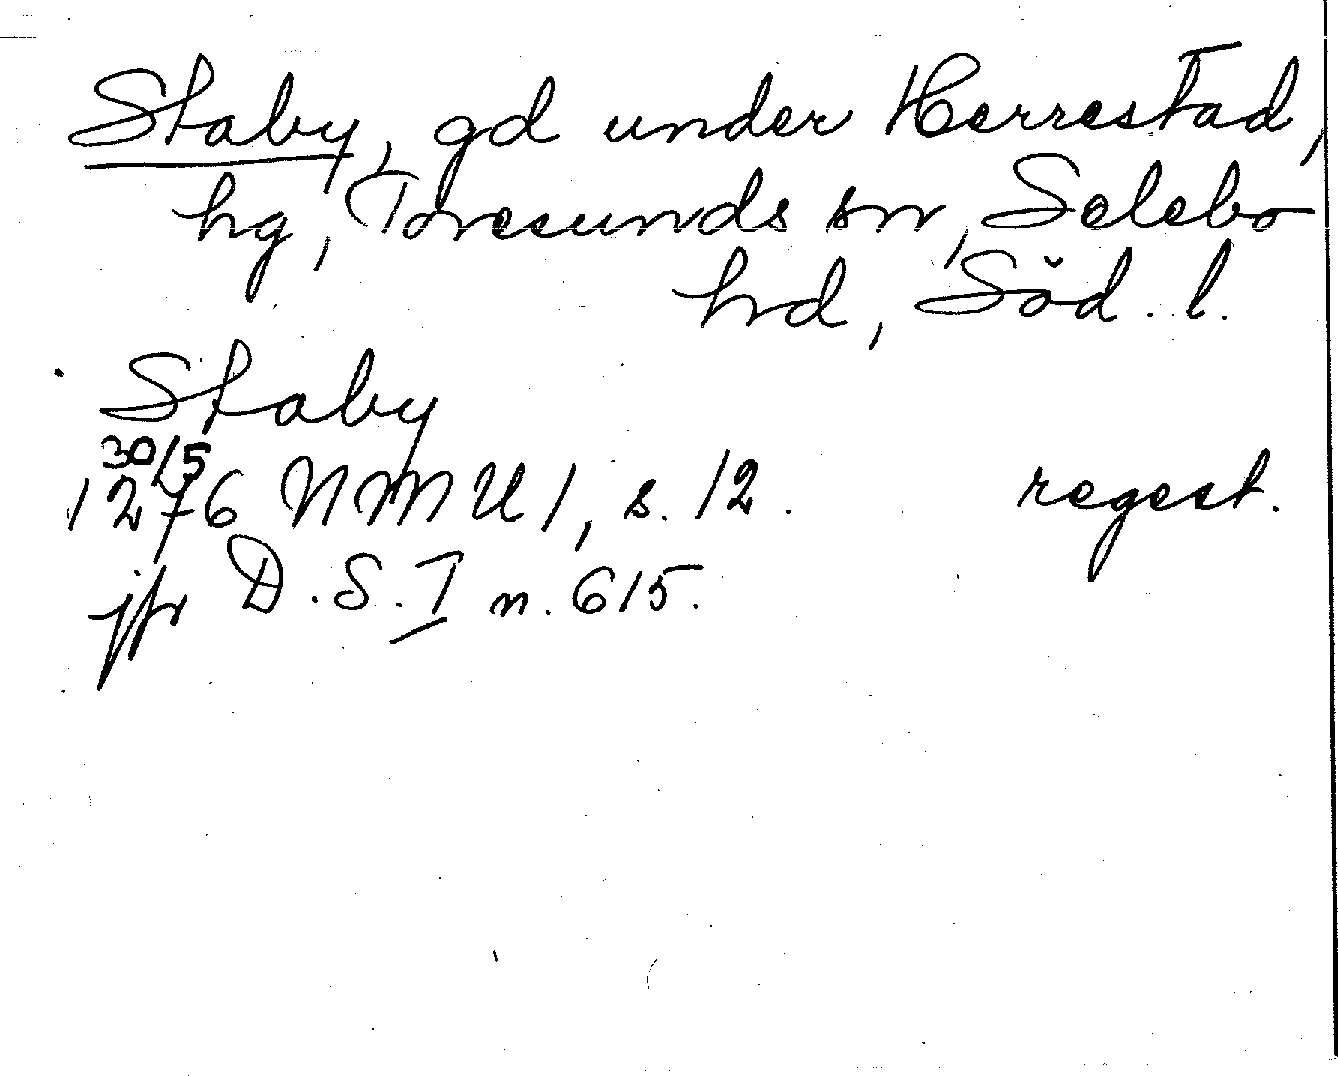 Staby, gd under Herrestad,
hg, Toresunds sn, Selebo
hd, Söd. l.
Staby
30/5
1276 NMU 1, s. 12. regest.
jfr D.S. I n. 615.